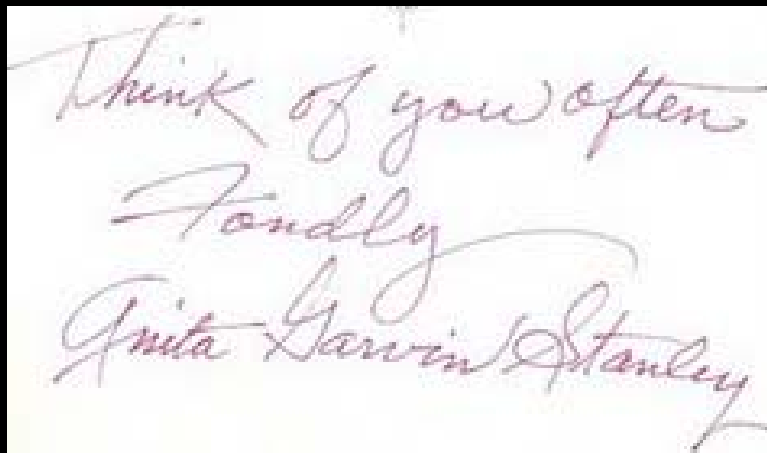 Think of you often
Fondly
Anita Garvin Stanley